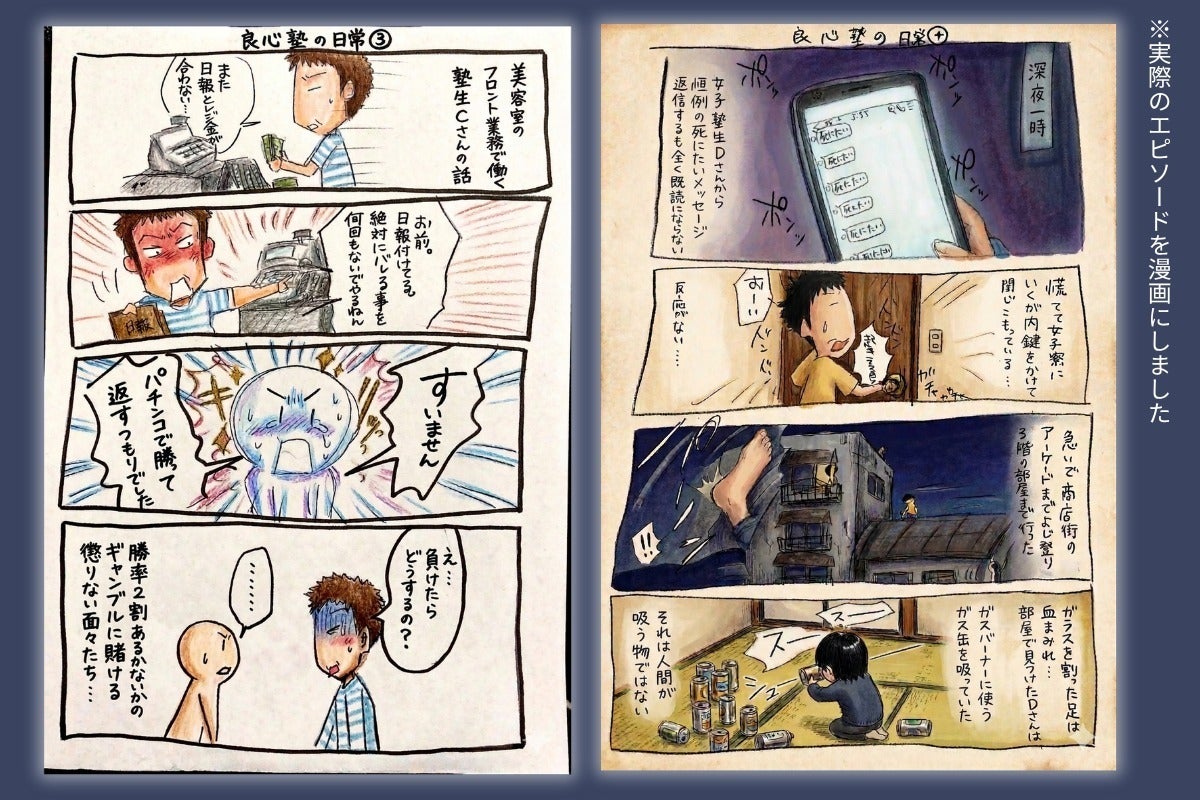 ※実際のエピソードを漫画にしました
良心塾の日常③
美容室の
フロント業務で働く
塾生Cさんの話
また
日報とレジ金が
合わない…
お前。
日報付けてる。
絶対にバレる事を
何回もないでやるねん
日報
すいません
パチンコで勝って
返すつもりでした
え…
負けたら
どうするの?
………
勝率2割あるかないかの
ギャンブルに賭ける
懲りない面々たち…
良心塾の日常④
深夜一時
ポンッ
ポンッ
ポンッ
ポンッ
女子塾生Dさんから
恒例の死にたいメッセージ
返信するも全く既読にならない
死にたい
死にたい
死にたい
死にたい
死にたい
死にたい
慌てて女子寮に
いくが内鍵をかけて
閉じこもっている…
おーい
ドンドン
ガチャガチャ
反応がない…
急いで商店街の
アーケードまでよじ登り
3階の部屋まで行った
!!
ガラスを割った足は
血まみれ…
部屋で見つけたDさんは
ガスバーナーに使う
ガス缶を吸っていた
スー
スー
シュー
それは人間が
吸う物ではない